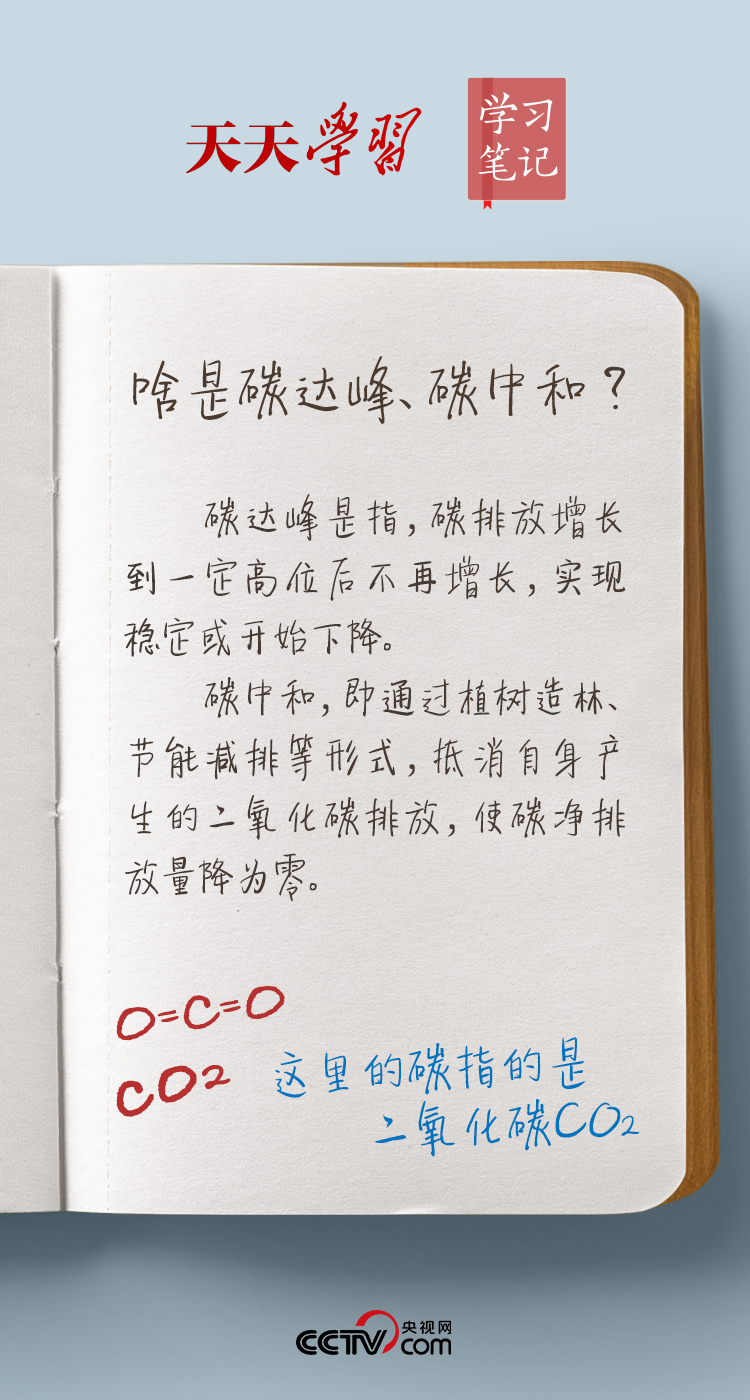 天天學習
学习
笔记
啥是碳达峰、碳中和？
碳达峰是指，碳排放增长
到一定高位后不再增长，实现
稳定或开始下降。
碳中和，即通过植树造林、
节能减排等形式，抵消自身产
生的二氧化碳排放，使碳净排
放量降为零。
O=C=O
CO2
这里的碳指的是
二氧化碳CO2
CCTV央视网
com